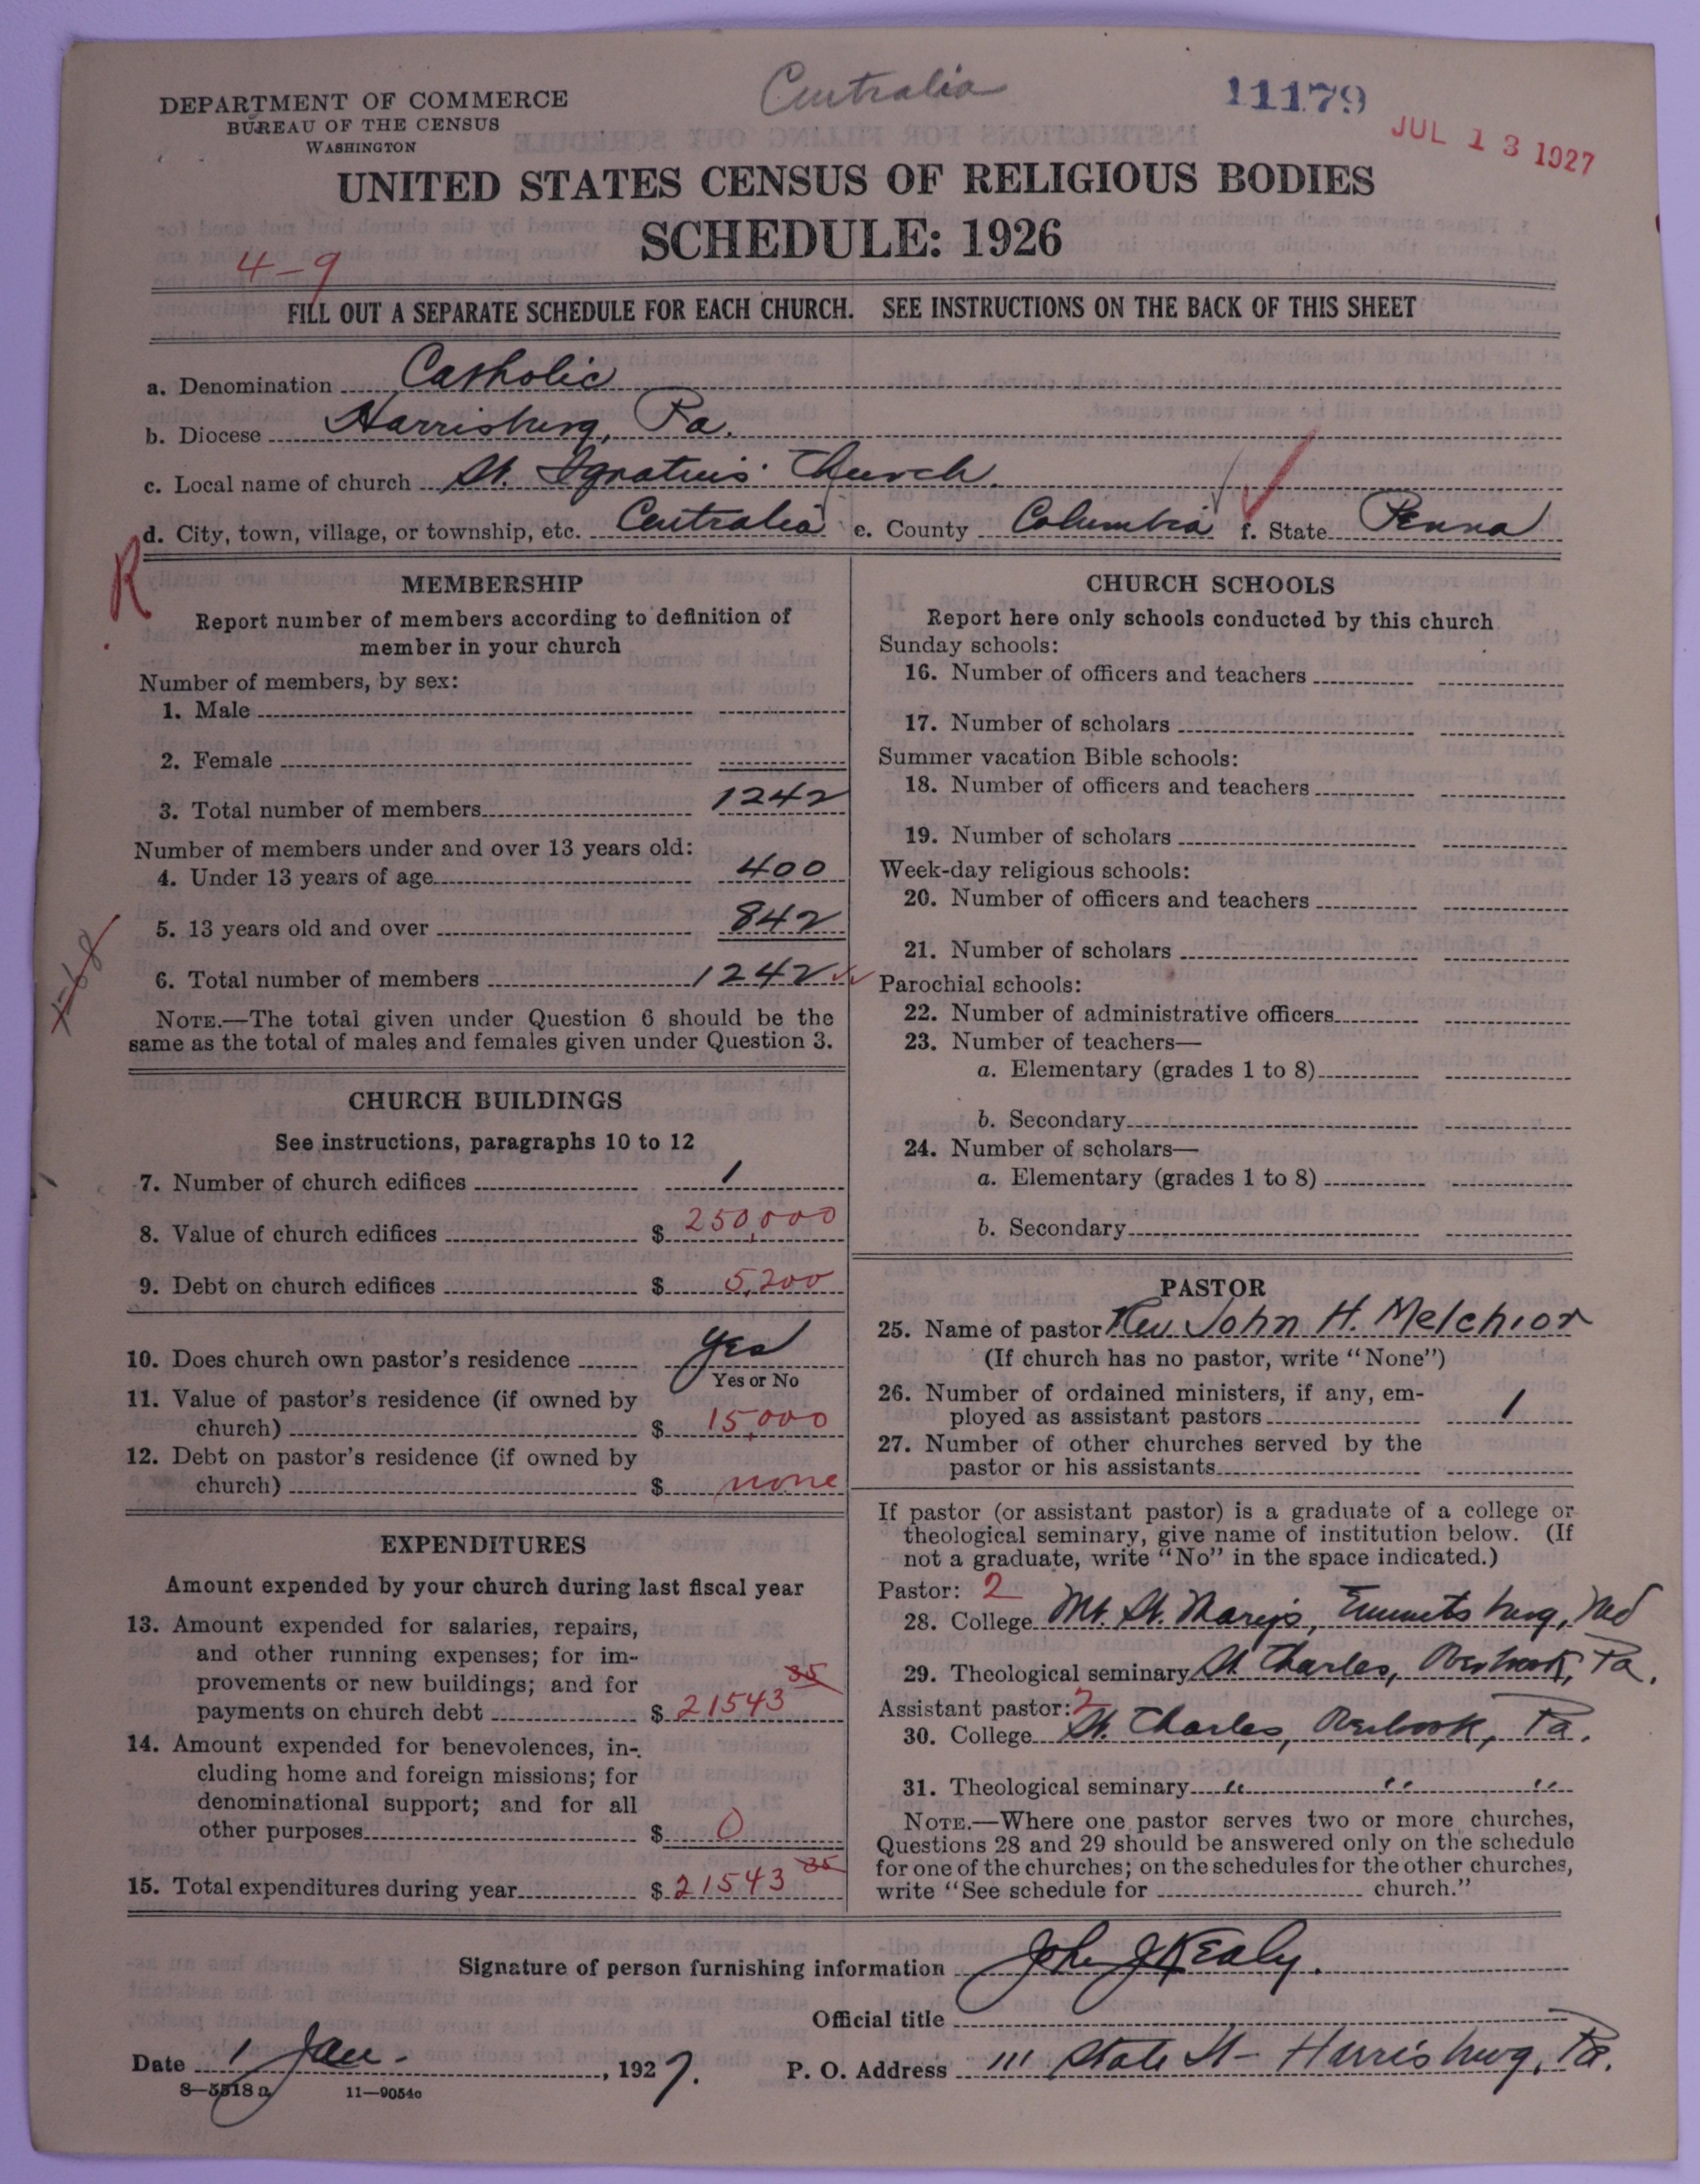 DEPARTMENT OF COMMERCE
BUREAU OF THE CENSUS
WASHINGTON
Centralia
11179
JUL 13 1927
UNITED STATES CENSUS OF RELIGIOUS BODIES
SCHEDULE: 1926
4-9
FILL OUT A SEPARATE SCHEDULE FOR EACH CHURCH. SEE INSTRUCTIONS ON THE BACK OF THIS SHEET
a. Denomination Catholic
b. Diocese Harrisburg, Pa.
c. Local name of church St. Ignatius Church.
d. City, town, village, or township, etc. Centralia e. County Columbia f. State Penna
R
MEMBERSHIP
Report number of members according to definition of
member in your church
Number of members, by sex:
1. Male
2. Female
3. Total number of members 1242
Number of members under and over 13 years old:
4. Under 13 years of age 400
5. 13 years old and over 842
6. Total number of members 1242
NOTE.—The total given under Question 6 should be the
same as the total of males and females given under Question 3.
CHURCH BUILDINGS
See instructions, paragraphs 10 to 12
7. Number of church edifices 1
8. Value of church edifices $ 250,000
9. Debt on church edifices $ 5,200
10. Does church own pastor's residence Yes
Yes or No
11. Value of pastor's residence (if owned by
church) $ 15,000
12. Debt on pastor's residence (if owned by
church) $ none
EXPENDITURES
Amount expended by your church during last fiscal year
13. Amount expended for salaries, repairs,
and other running expenses; for im-
provements or new buildings; and for
payments on church debt $ 21543 35
14. Amount expended for benevolences, in-
cluding home and foreign missions; for
denominational support; and for all
other purposes $ 0
15. Total expenditures during year $ 21543 35
CHURCH SCHOOLS
Report here only schools conducted by this church
Sunday schools:
16. Number of officers and teachers
17. Number of scholars
Summer vacation Bible schools:
18. Number of officers and teachers
19. Number of scholars
Week-day religious schools:
20. Number of officers and teachers
21. Number of scholars
Parochial schools:
22. Number of administrative officers
23. Number of teachers—
a. Elementary (grades 1 to 8)
b. Secondary
24. Number of scholars—
a. Elementary (grades 1 to 8)
b. Secondary
PASTOR
25. Name of pastor Rev. John H. Melchior
(If church has no pastor, write "None")
26. Number of ordained ministers, if any, em-
ployed as assistant pastors 1
27. Number of other churches served by the
pastor or his assistants
If pastor (or assistant pastor) is a graduate of a college or
theological seminary, give name of institution below. (If
not a graduate, write "No" in the space indicated.)
Pastor: 2
28. College Mt. St. Mary's, Emmitsburg, Md
29. Theological seminary St Charles, Overbrook, Pa.
Assistant pastor: 2
30. College St. Charles, Overbook, Pa.
31. Theological seminary " " "
NOTE.—Where one pastor serves two or more churches,
Questions 28 and 29 should be answered only on the schedule
for one of the churches; on the schedules for the other churches,
write "See schedule for church."
Signature of person furnishing information John J Kealy.
Official title
Date 1 Jan. , 1927. P. O. Address 111 State St - Harrisburg, Pa.
8—5518 a 11—9054c